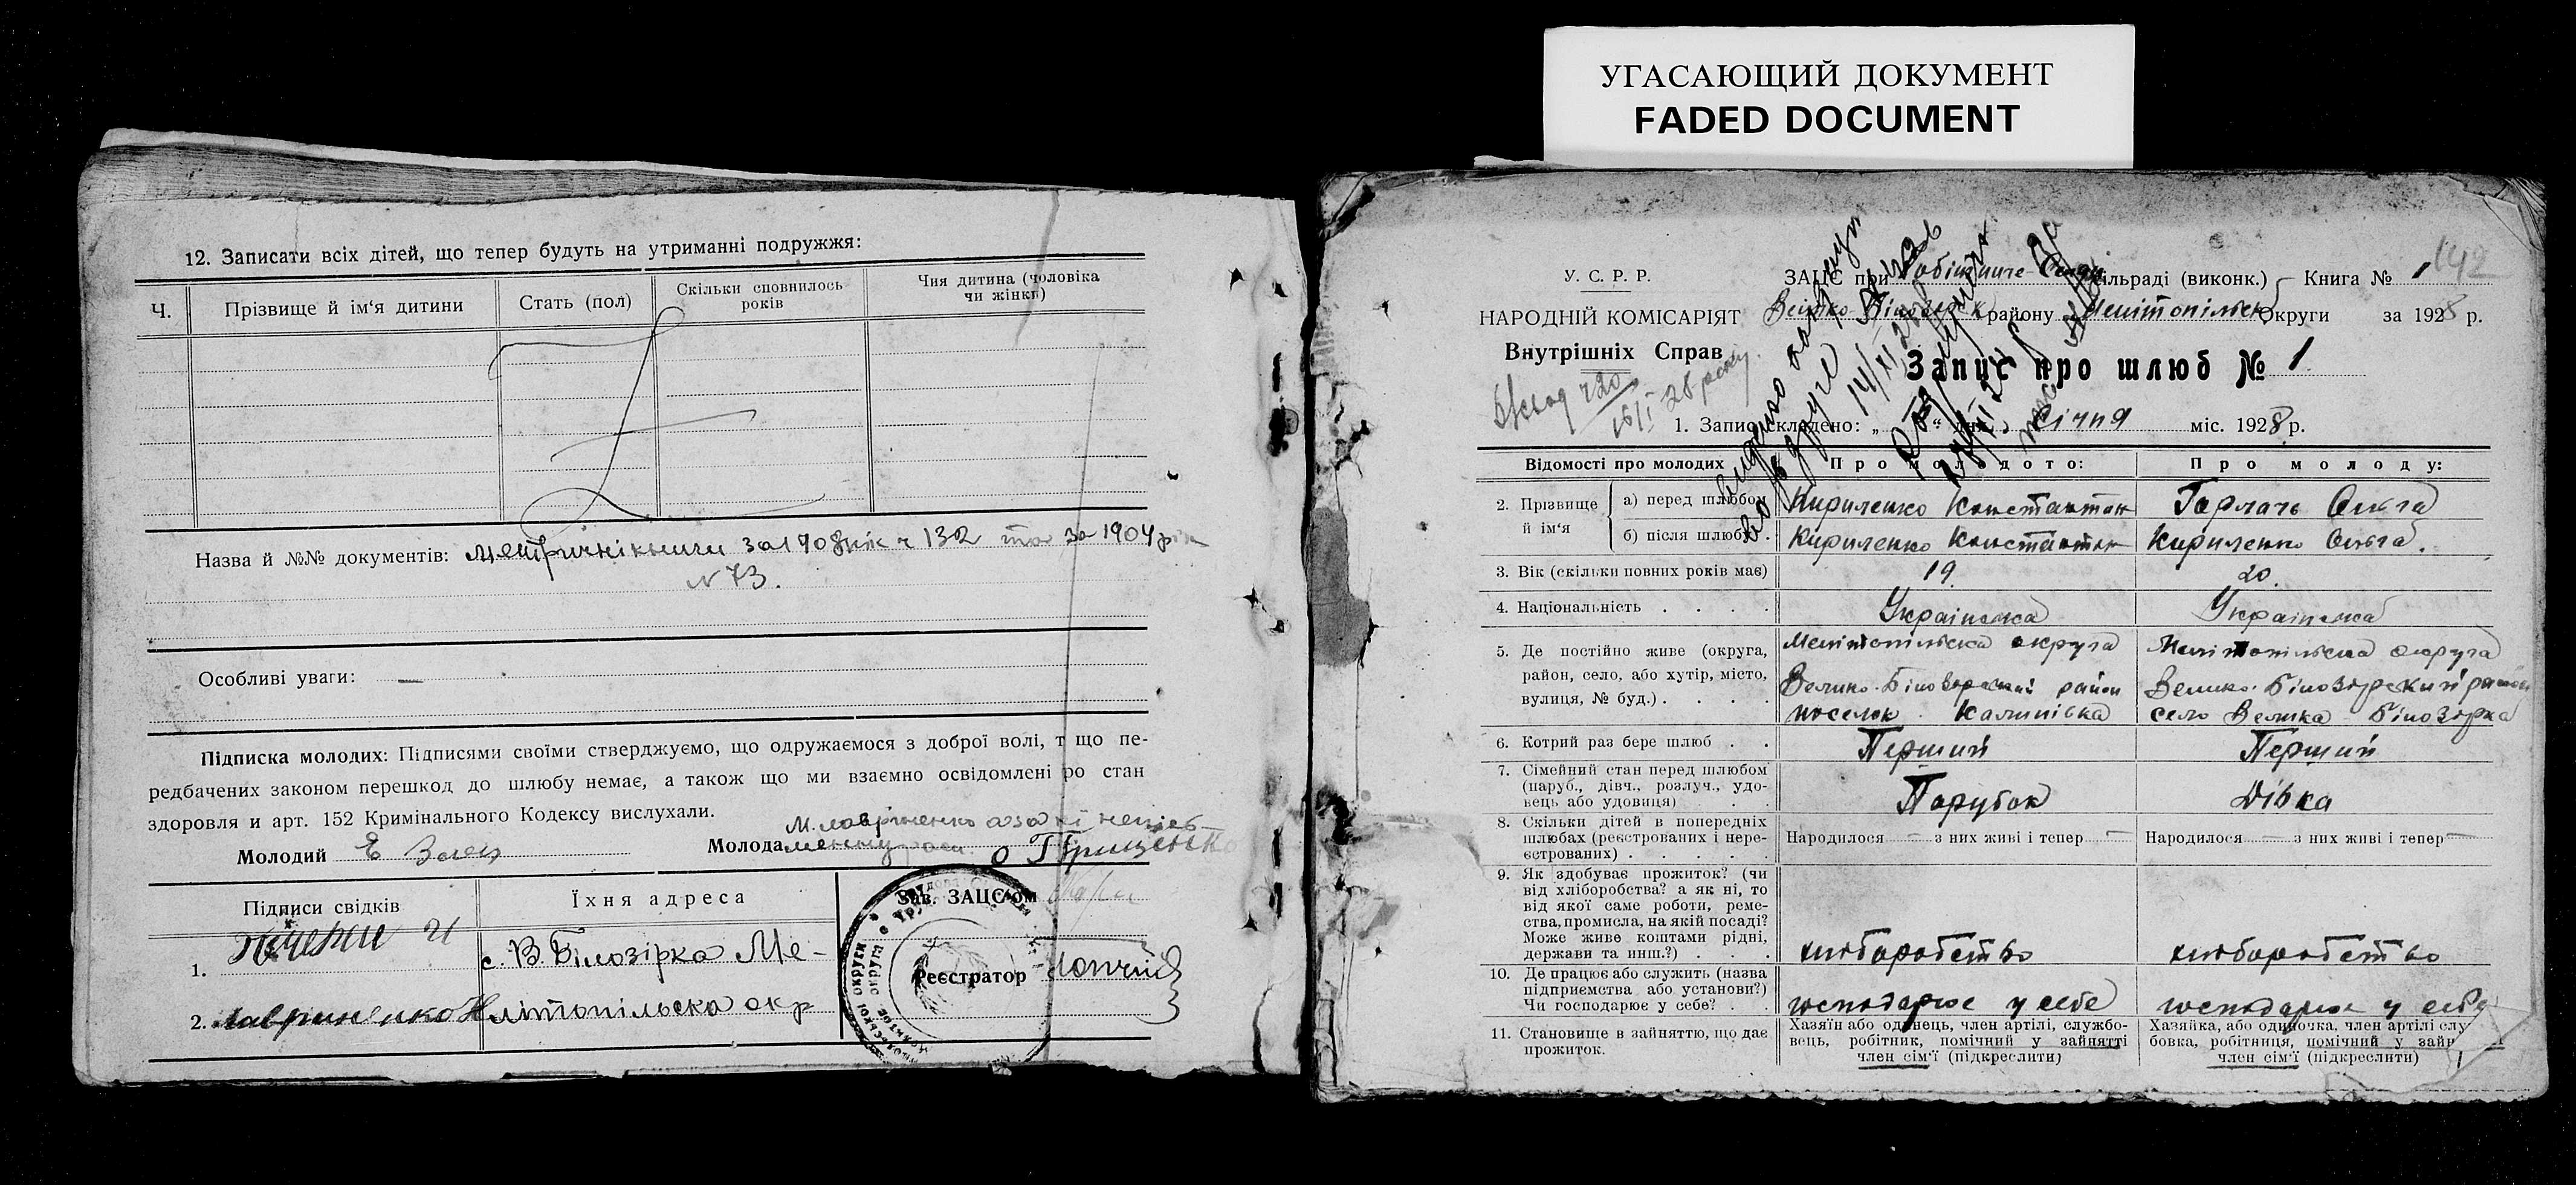 УГАСАЮЩИЙ ДОКУМЕНТ
FADED DOCUMENT
12. Записати всіх дітей, що тепер будуть на утриманні подружжя:
Ч.
Прізвище й ім‘я дитини
Стать (пол)
Скільки сповнилось
років
Чия дитина (чоловіка
чи жінки)
Назва й №№ документів: Метричні книги за 1908 рік ч 132 та за 1904 рік
N 73.
Особливі уваги: —
Підписка молодих: Підписями своїми стверджуємо, що одружаємося з доброї волі, т що пе-
редбачених законом перешкод до шлюбу немає, а також що ми взаємно освідомлені ро стан
здоровля и арт. 152 Кримінального Кодексу вислухали.
М. Лавріненко а за її непись-
Молодий Е
Молода менну
О Грищенко
Підписи свідків
Їхня адреса
Зав. ЗАЦС‘ом
1.
с. В. Білозірка Ме-
Реєстратор
2. Лавриненко Н
літопільска окр
142
У. С. Р. Р.
НАРОДНІЙ КОМІСАРІЯТ
Внутрішніх Справ
ЗАЦС при сільраді (виконк.) Книга № 1
Велико Білозерск району Мелітопільск Округи за 1928 р.
Запис про шлюб № 1
16/I 28 року
14/II 28
1. Запис складено: „ “ дня січня міс. 1928 р.
Відомості про молодих
Про молодого:
Про молоду:
2. Прізвище й ім‘я
а) перед шлюбом
Кириленко Констянтин
Горлачь Ольга
б) після шлюбу.
Кириленко Констянтин
Кириленко Ольга.
3. Вік (скільки повних років має)
19
20.
4. Національність . . . .
Українська
Українська
5. Де постійно живе (округа,
район, село, або хутір, місто,
вулиця, № буд.) . . . .
Мелітопільска округа
Велико-Білозерский район
поселок Калинівка
Мелітопільска округа
Велико-Білозерский район
село Велика Білозірка
6. Котрий раз бере шлюб . .
Перший
Перший
7. Сімейний стан перед шлюбом
(паруб., дівч., розлуч., удо-
вець або удовиця) . .
Парубок
Дівка
8. Скільки дітей в попередніх
шлюбах (реєстрованих і нере-
єстрованих) . . . . .
Народилося — з них живі і тепер —
Народилося — з них живі і тепер —
9. Як здобуває прожиток? (чи
від хліборобства? а як ні, то
від якої саме роботи, реме-
ства, промисла, на якій посаді?
Може живе коштами рідні,
держави та инш.?) . . .
хліборобство
хліборобство
10. Де працює або служить (назва
підприємства або установи?)
Чи господарює у себе? . .
господарює у себе
господарює у себе
11. Становище в зайняттю, що дає
прожиток.
Хазяїн або одинець, член артілі, службо-
вець, робітник, помічний у зайнятті
член сім‘ї (підкреслити)
Хазяйка, або одиночка, член артілі слу
бовка, робітниця, помічний у зайн
член сім‘ї (підкреслити)